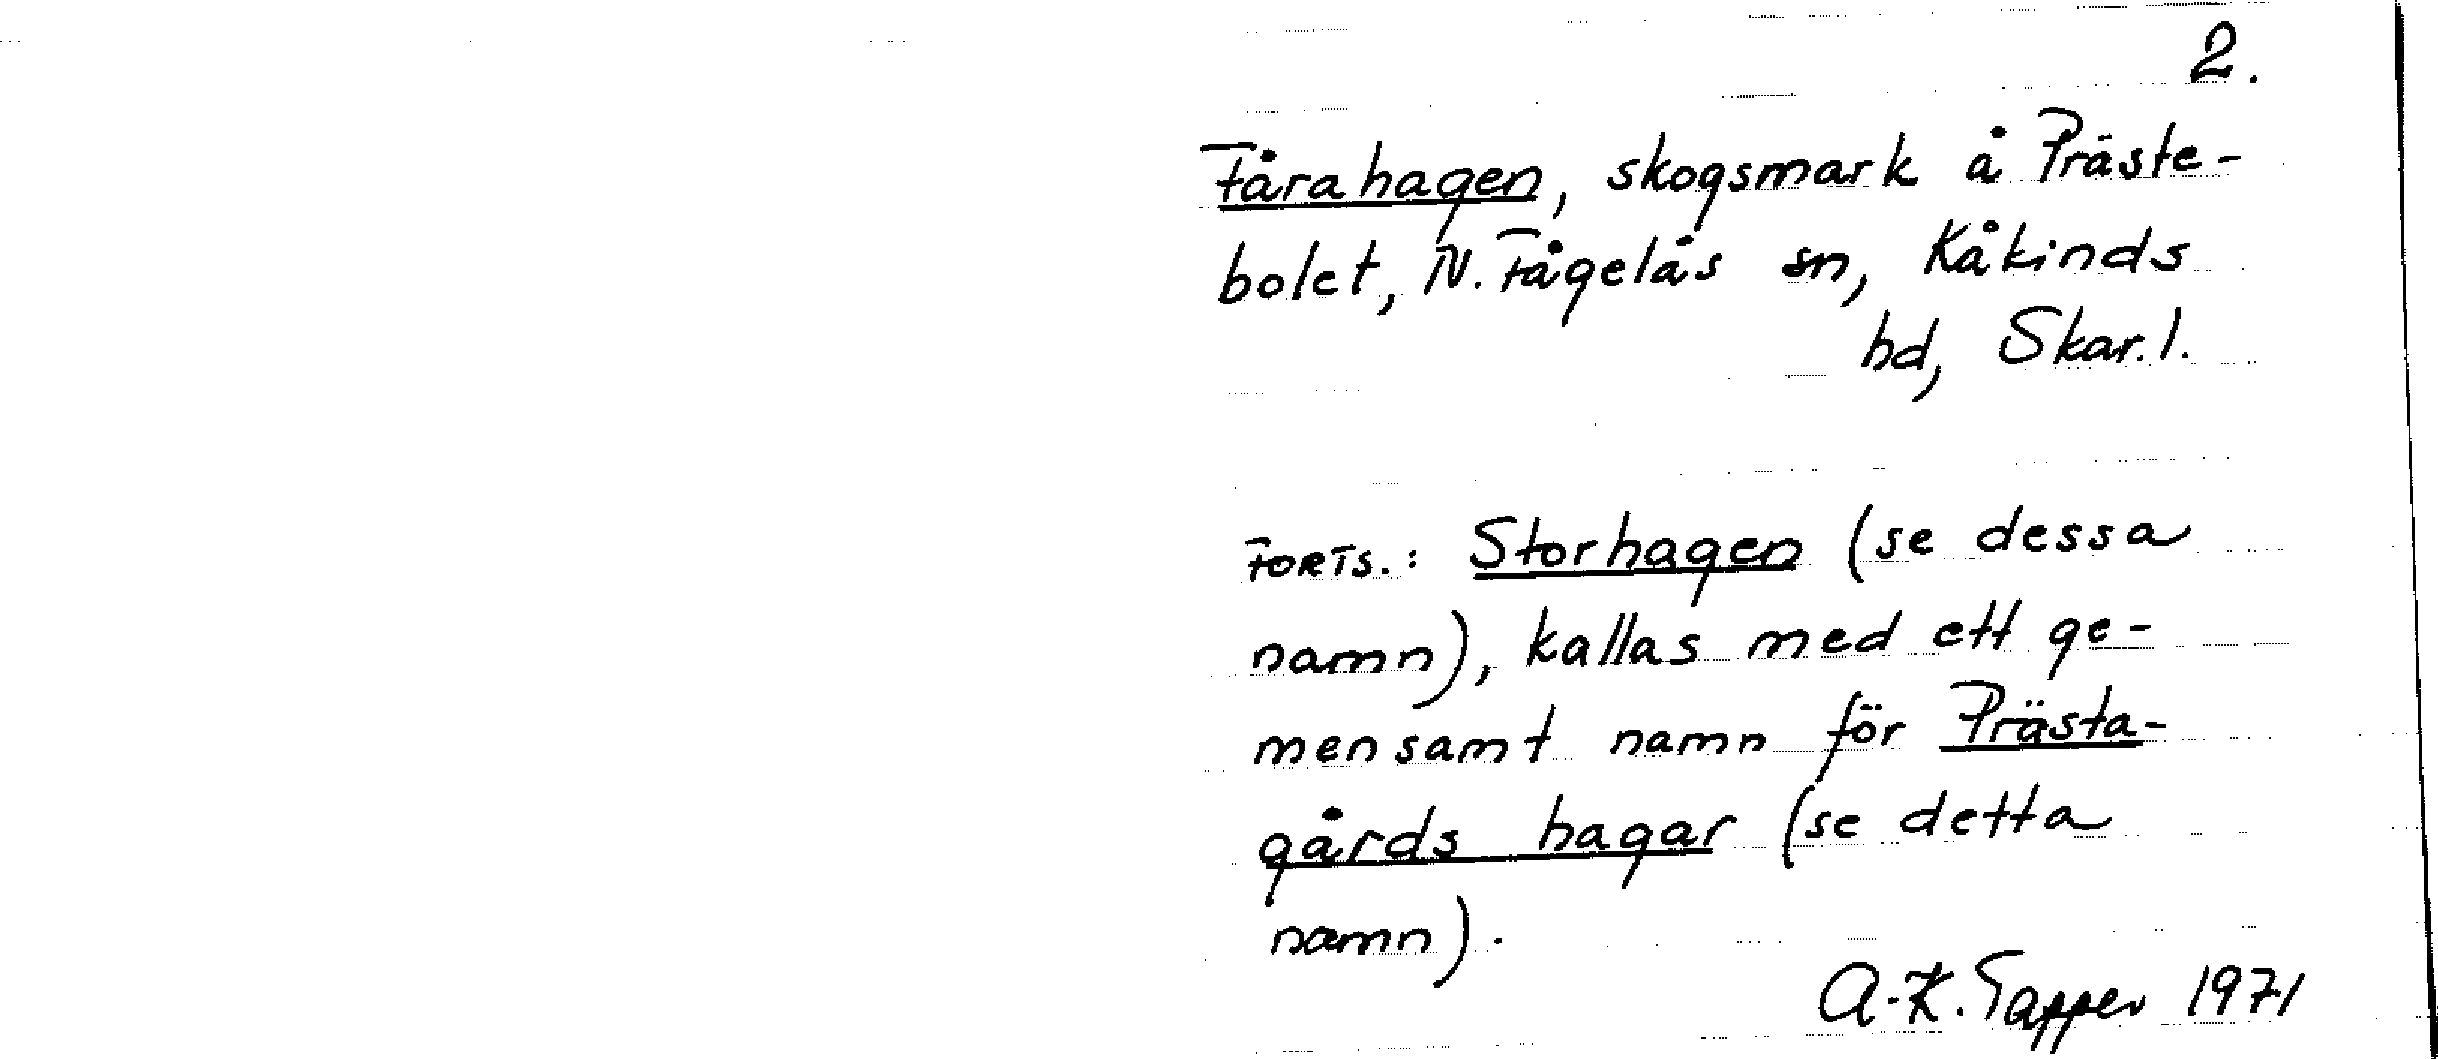 2.
Fårahagen, skogsmark å Präste-
bolet, N. Fågelås sn, Kåkinds
hd, Skar. l.
FORTS.: Storhagen (se dessa
namn), kallas med ett ge-
mensamt namn för Prästa-
gårds hagar (se detta
namn).
A-K. Tapper 1971